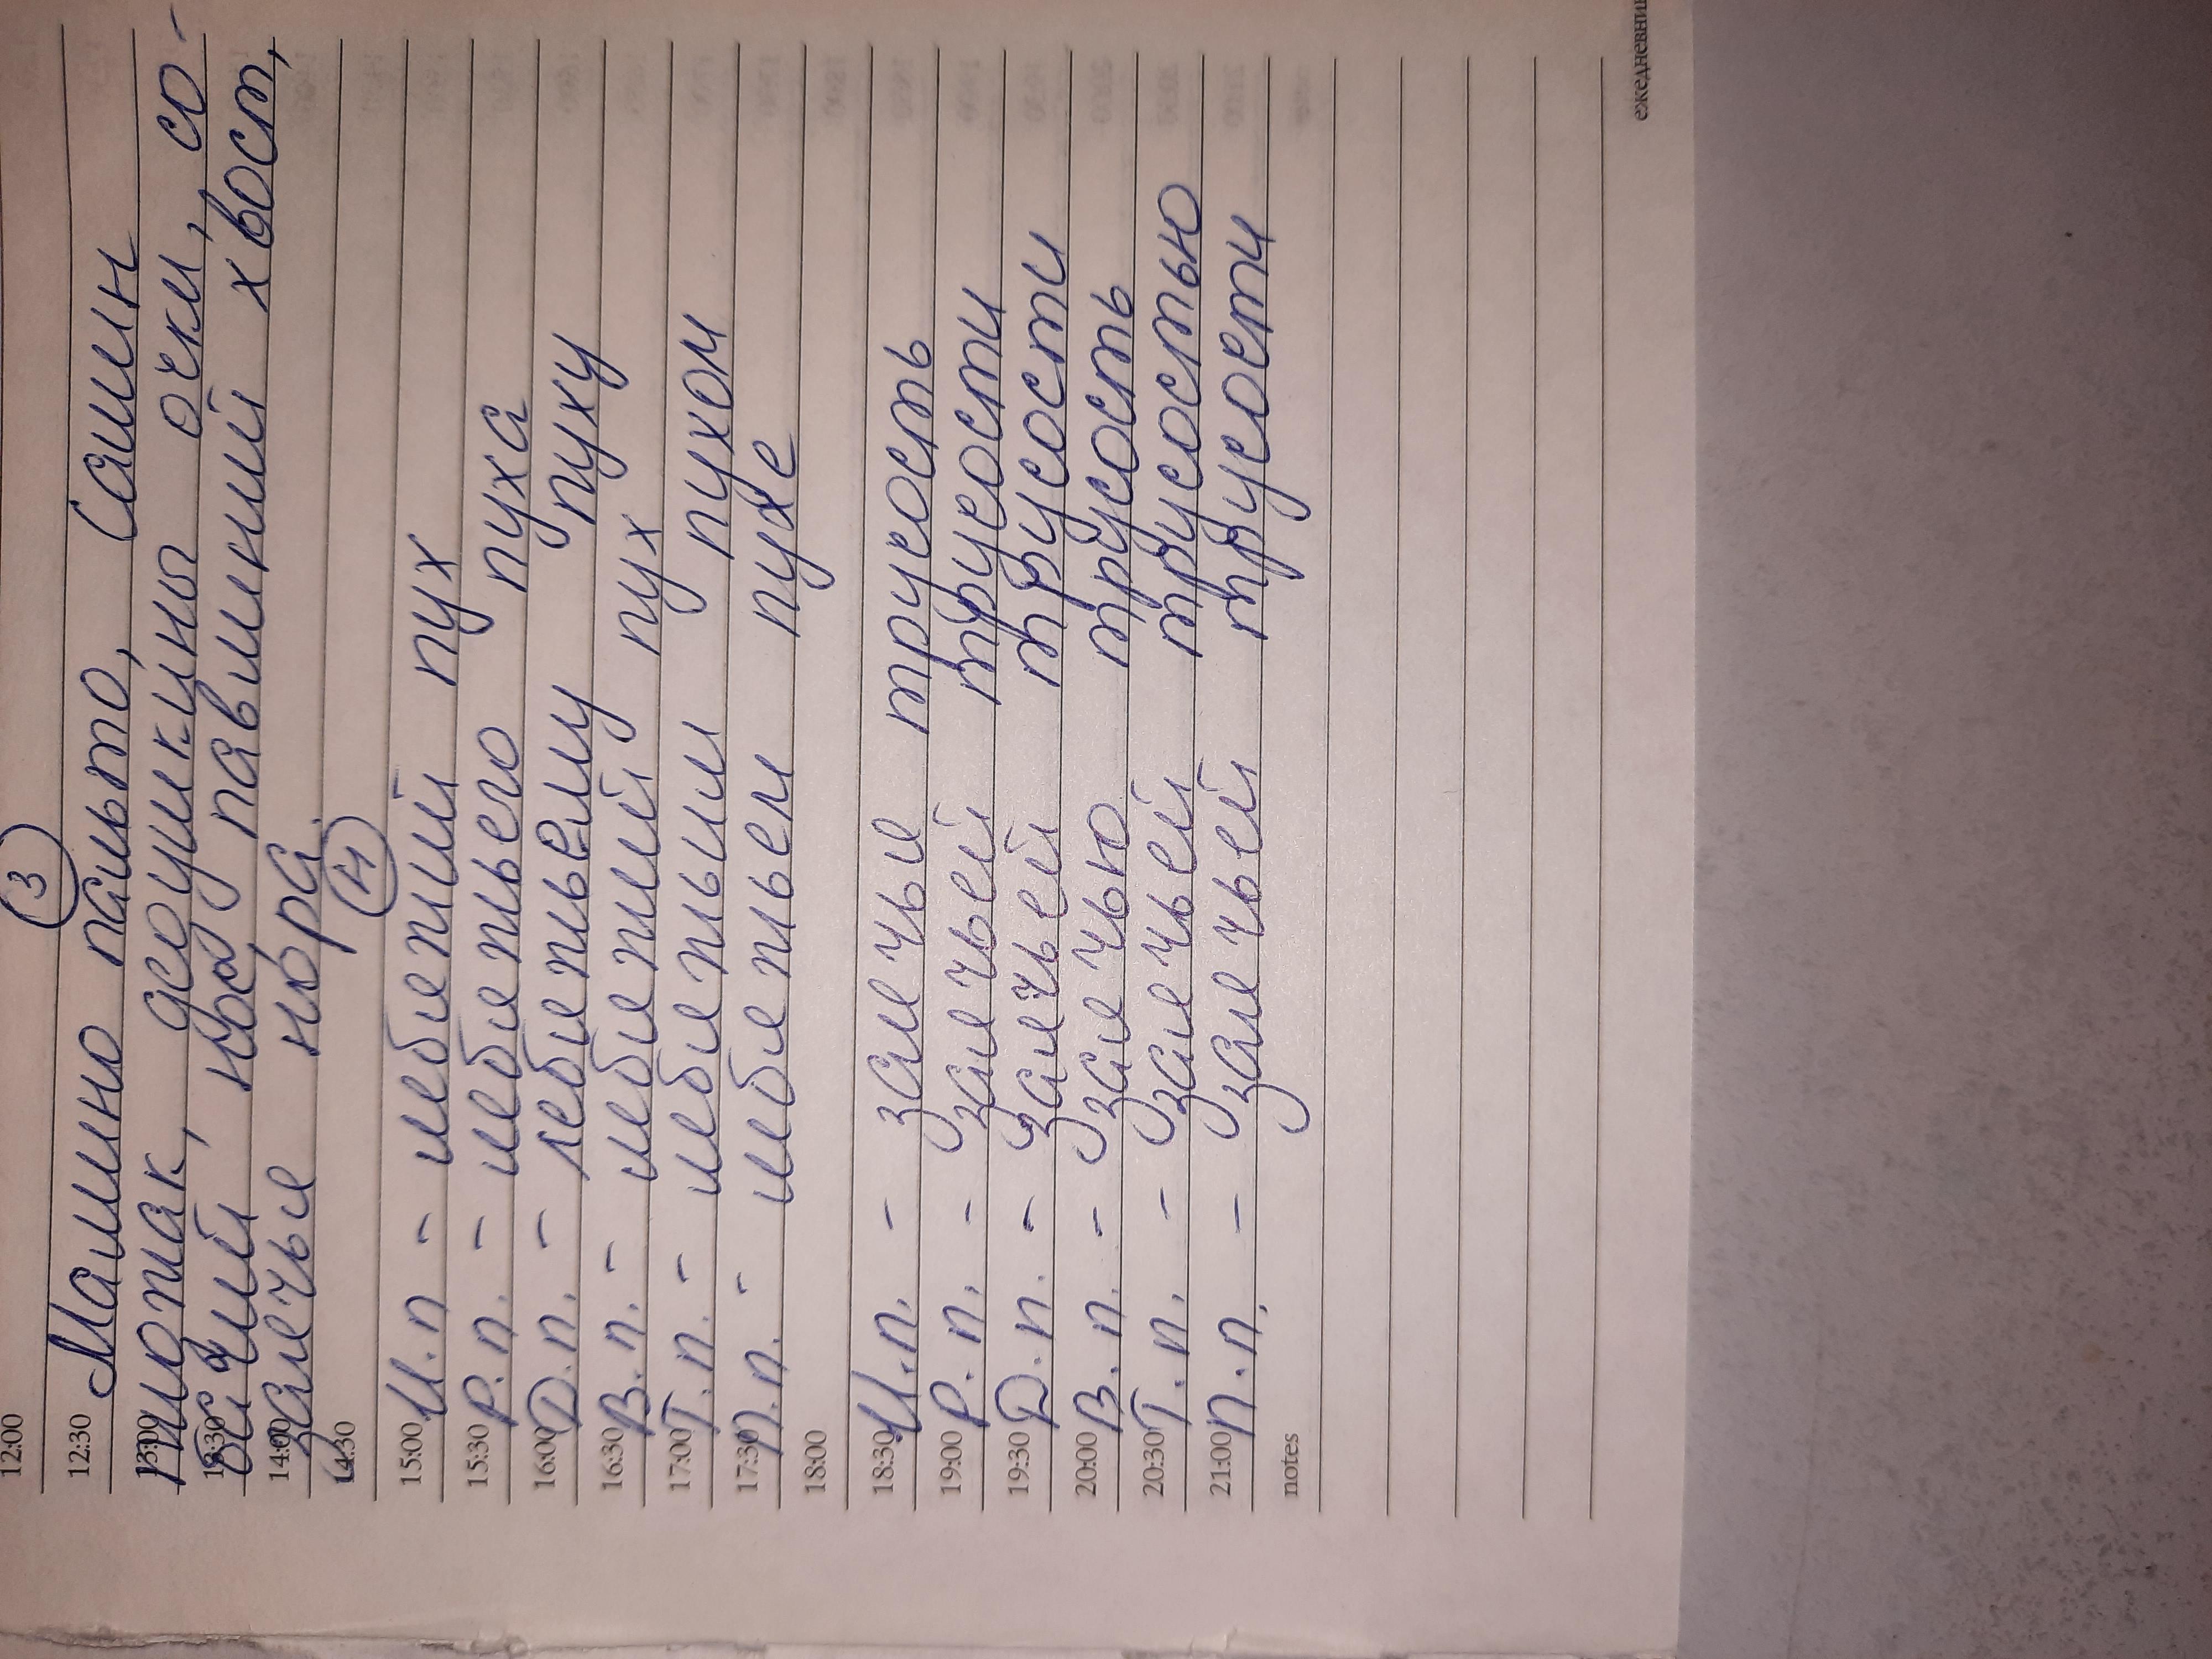 12:00 3
12:30 Мамино пальто, Сашин
13:00 пиджак, дедушкины очки, со-
13:30 бачий нос, павлиний хвост,
14:00 заячья нора.
14:30 4
15:00 И.п - лебяжий пух
15:30 Р.п. - лебяжьего пуха
16:00 Д.п. - лебяжьему пуху
16:30 В.п. - лебяжий пух
17:00 Т.п. - лебяжьим пухом
17:30 П.п. - лебяжьем пухе
18:00
18:30 И.п. - заячья трусость
19:00 Р.п. - заячьей трусости
19:30 Д.п. - заячьей трусости
20:00 В.п. - заячью трусость
20:30 Т.п. - заячьей трусостью
21:00 П.п. - заячьей трусости
notes
ежедневник